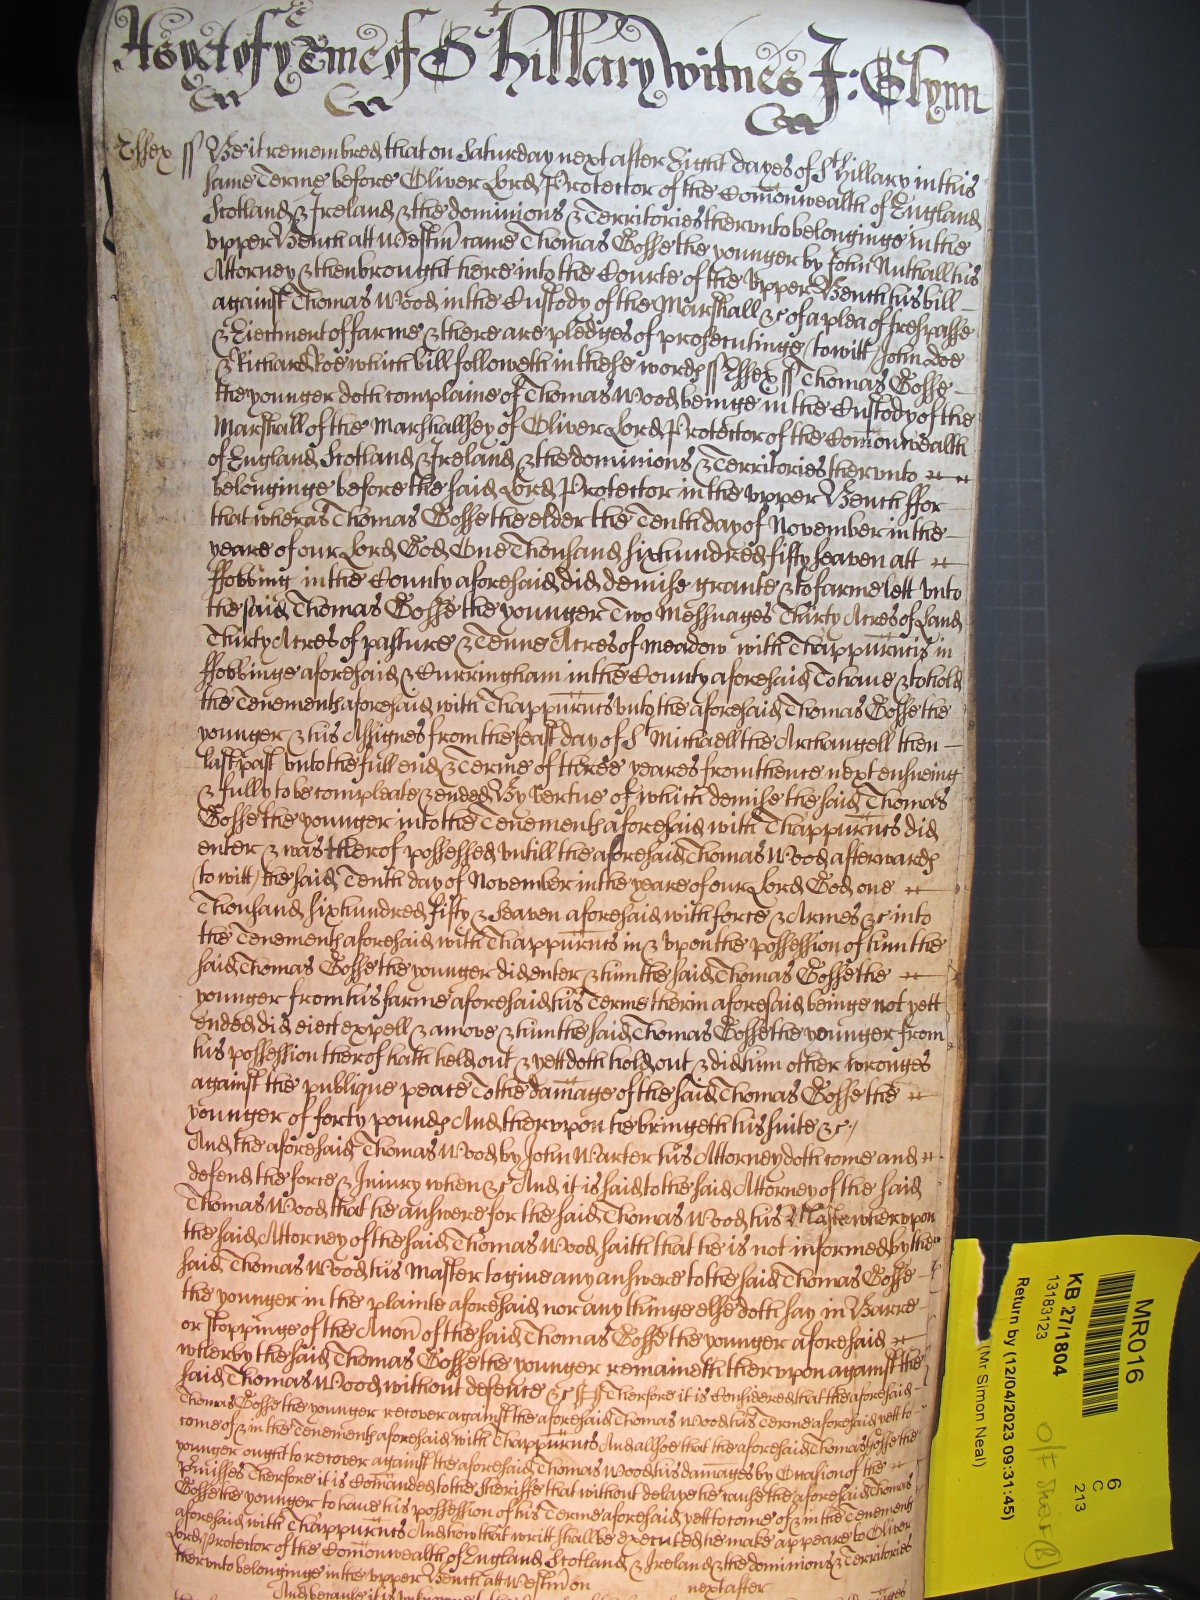 As yet of ye Tme of St Hillary witnes J: Glynn
Essex ss Be it remembred that on Saturday next after Eight dayes of St Hillary in this
same Terme before Oliver Lord Protector of the Comonwealth of England
Scotland & Ireland & the dominions & Territories thervnto belonginge in the
vpper Bench att Westm came Thomas Gosse the younger by John Nuthall his
Attorney & then brought here into the Courte of the vpper Bench his bill
against Thomas Wood in the Custody of the Marshall &c of a plea of trespasse
& Eiectment of farme & there are pledges of prosecutinge (to witt) John Doe
& Richard Roe which bill followeth in these words ss Essex ss Thomas Gosse
the younger doth complaine of Thomas Wood beinge in the Custody of the
Marshall of the Marshallsey of Oliver Lord Protector of the Comonwealth
of England Scotland & Ireland & the dominions & Territories thervnto
belonginge before the said Lord Protector in the vpper Bench ffor
that wheras Thomas Gosse the elder the Tenth day of November in the
yeare of our Lord God One Thousand six hundred fifty seaven att
ffobbing in the County aforesaid did demise grante & to farme lett vnto
the said Thomas Gosse the younger Two Messuages Thirty Acres of Land
Thirty Acres of pasture & Tenne Acres of meadow with Thappurtncs in
ffobbinge aforesaid & Curringham in the County aforesaid To haue & to hold
the Tenements aforesaid with Thappurtncs vnto the aforesaid Thomas Gosse the
younger & his Assignes from the feast day of St Michaell the Archangell then
last past vnto the full end & Terme of three yeares from thence next ensueing
& fully to be compleate & ended By vertue of which demise the said Thomas
Gosse the younger into the Tenements aforesaid with Thappurtncs did
enter & was therof possessed vntill the aforesaid Thomas Wood afterwards
(to witt) the said Tenth day of November in the yeare of our Lord God one
Thousand six hundred fifty & seaven aforesaid with force & Armes &c into
the Tenements aforesaid with Thappurtncs in & vpon the possession of him the
said Thomas Gosse the younger did enter & him the said Thomas Gosse the
younger from his farme aforesaid his Terme therin aforesaid beinge not yett
ended did eiect expell & amove & him the said Thomas Gosse the younger from
his possession therof hath held out & yett doth hold out & did him other wronges
against the publique peace To the damage of the said Thomas Gosse the
younger of forty pounds And thervpon he bringeth his suite &c
And the aforesaid Thomas Wood by John Warter his Attorney doth come and
defend the force & Iniury when &c And it is said to the said Attorney of the said
Thomas Wood that he answere for the said Thomas Wood his Master whervpon
the said Attorney of the said Thomas Wood saith that he is not informed by the
said Thomas Wood his Master to giue any answere to the said Thomas Gosse
the younger in the plainte aforesaid nor any thinge else doth say in Barre
or stoppinge of the Accon of the said Thomas Gosse the younger aforesaid
wherby the said Thomas Gosse the younger remaineth thervpon against the
said Thomas Wood without defence &c Therfore it is Considered that the aforesaid
Thomas Gosse the younger recover against the aforesaid Thomas Wood his Terme aforesaid yett to
come of & in the Tenements aforesaid with Thappurtncs And allsoe that the aforesaid Thomas Gosse the
younger ought to recover against the aforesaid Thomas Wood his damages by Occasion of the
pmisses Therfore it is Comanded to the Sheriffe that without delaye he cause the aforesaid Thomas
Gosse the younger to haue his possession of his Terme aforesaid yett to come of & in the Tenements
aforesaid with Thappurtncs And how that writt shall be executed he make appeare to Oliver
Lord Protector of the Comonwealth of England Scotland & Ireland & the dominions & Territories
thervnto belonginge in the vpper Bench att Westm on next after
And because it is
MR016
KB 27/1804
13183123
Return by (12/04/2023 09:31:45)
(Mr Simon Neal)
6
C
213